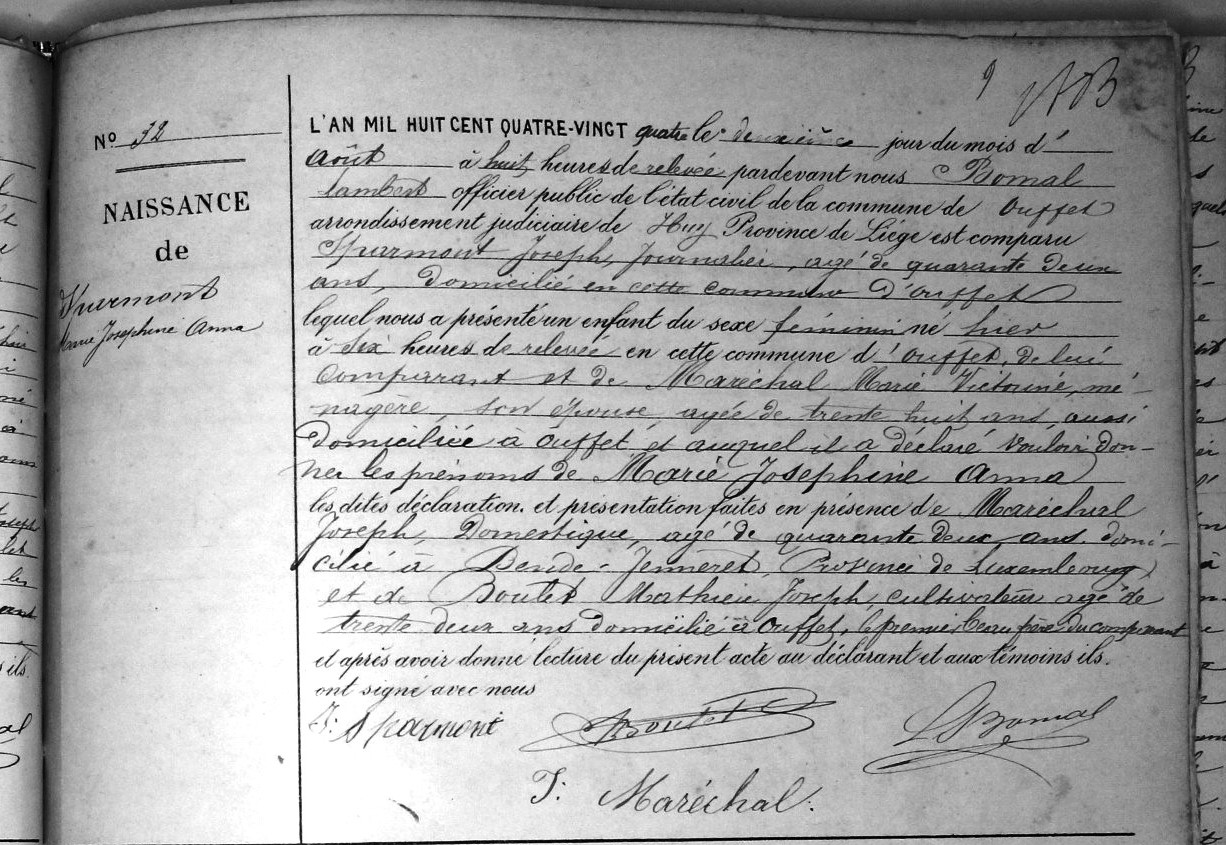 9
N° 32
NAISSANCE
de
Spurmont
Marie Josephine Anna
L'AN MIL HUIT CENT QUATRE-VINGT quatre le deuxième jour du mois d'
Août à huit heures de relevée pardevant nous Bomal
Lambert officier public de l'état civil de la commune de Ouffet
arrondissement judiciaire de Huy Province de Liége est comparu
Spurmont Joseph, Journalier, agé de quarante deux
ans, domicilié en cette commune d'Ouffet
lequel nous a présenté un enfant du sexe féminin né hier
à six heures de relevée en cette commune d'Ouffet, de lui
Comparrant et de Maréchal Marie Victorine, mé-
nagère, son épouse, agée de trente huit ans, aussi
domiciliée à Ouffet et auquel il a déclaré vouloir don-
ner les prénoms de Marie Josephine Anna
les dites déclaration et présentation faites en présence de Maréchal
Joseph, Domestique, agé de quarante deux ans domi-
cilié à Bende-Jenneret, Province de Luxembourg,
et de Boulet Mathieu Joseph, cultivateur agé de
trente deux ans domicilié à Ouffet, le premier beau frère du comparant
et après avoir donné lecture du présent acte au déclarant et aux témoins ils
ont signé avec nous
J: Sparmont Boulet L Bomal
J: Maréchal